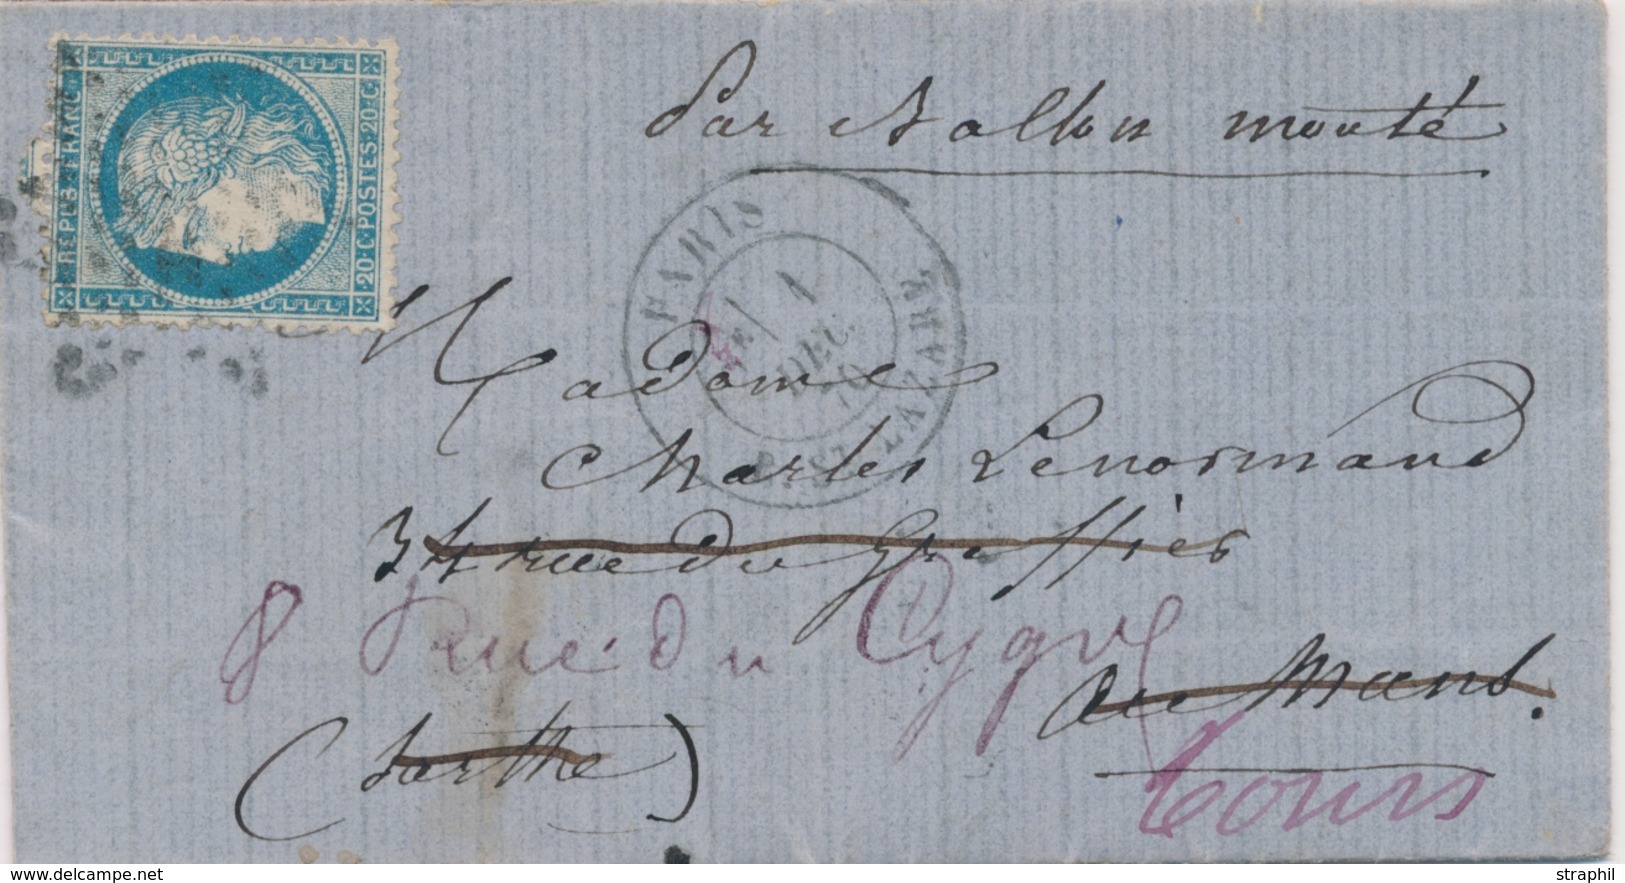 REPUB·FRANC
20·C·POSTES·20·C
Par Ballon monté
PARIS
R. ST LAZARE
1
DEC.
70
Madame
Charles Lenormand
34 rue du Greffier
8 Rue du Cygne
au Mans.
(Sarthe)
Tours
delcampe.net
straphil